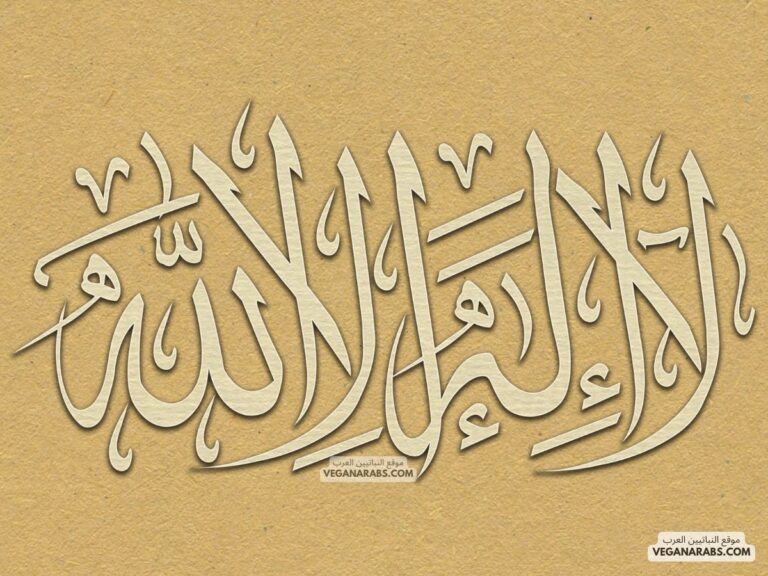 لا إله إلا الله
موقع النباتيين العرب
VEGANARABS.COM
موقع النباتيين العرب
VEGANARABS.COM